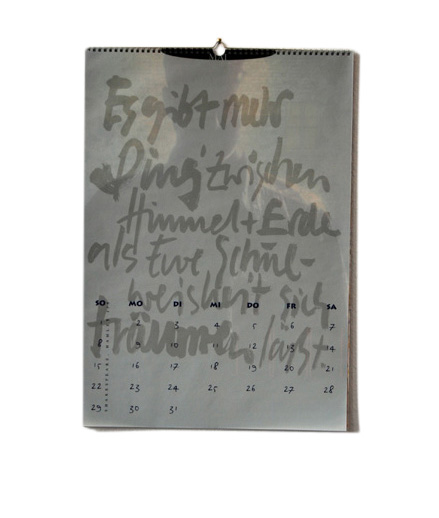 Es gibt mehr
Ding' zwischen
Himmel + Erde
als Eure Schul-
weisheit sich
träumen lässt.
SO MO DI MI DO FR SA
1 2 3 4 5 6 7
8 9 10 11 12 13 14
15 16 17 18 19 20 21
22 23 24 25 26 27 28
29 30 31
SHAKESPEARE HAMLET